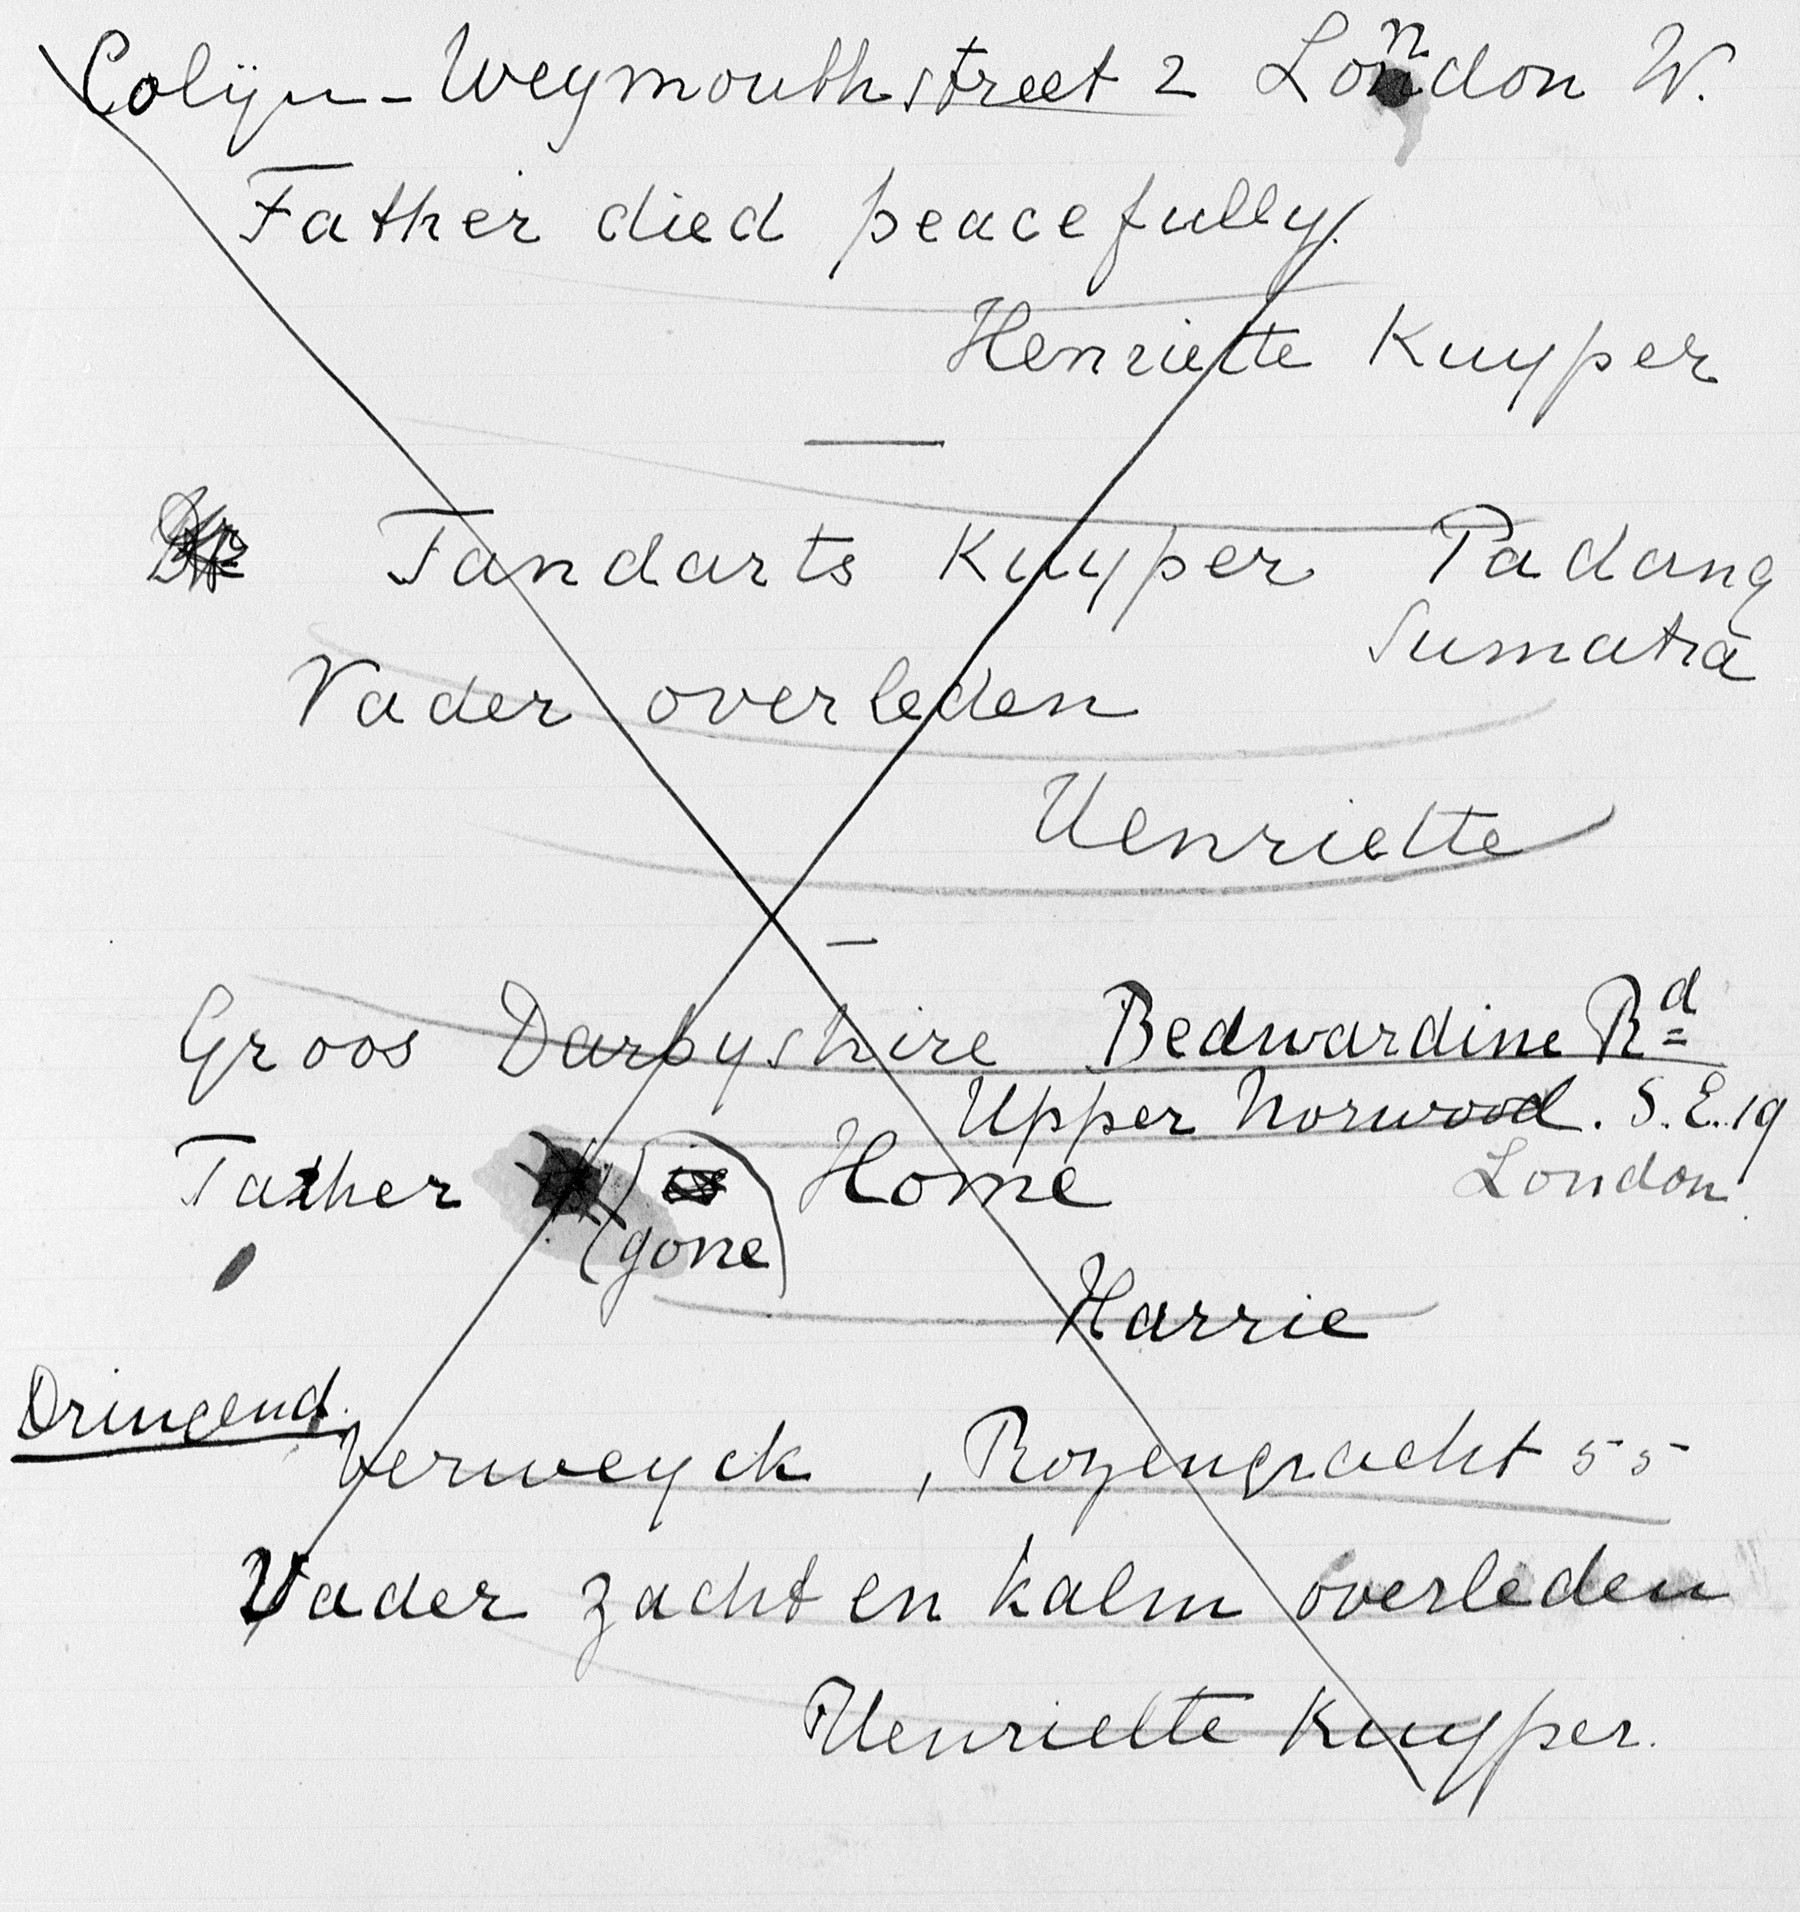 Colijn - Weymouthstreet 2 London W.
Father died peacefully.
Henriette Kuyper
Tandarts Kuyper Padang
Sumatra
Vader overleden
Henriette
Groos Darbyshire Bedwardine Rd
Upper Norwood. S.E. 19
London
Father (gone) Home
Harrie
Dringend.
Verweyck, Rozengracht 55
Vader zacht en kalm overleden
Henriette Kuyper.